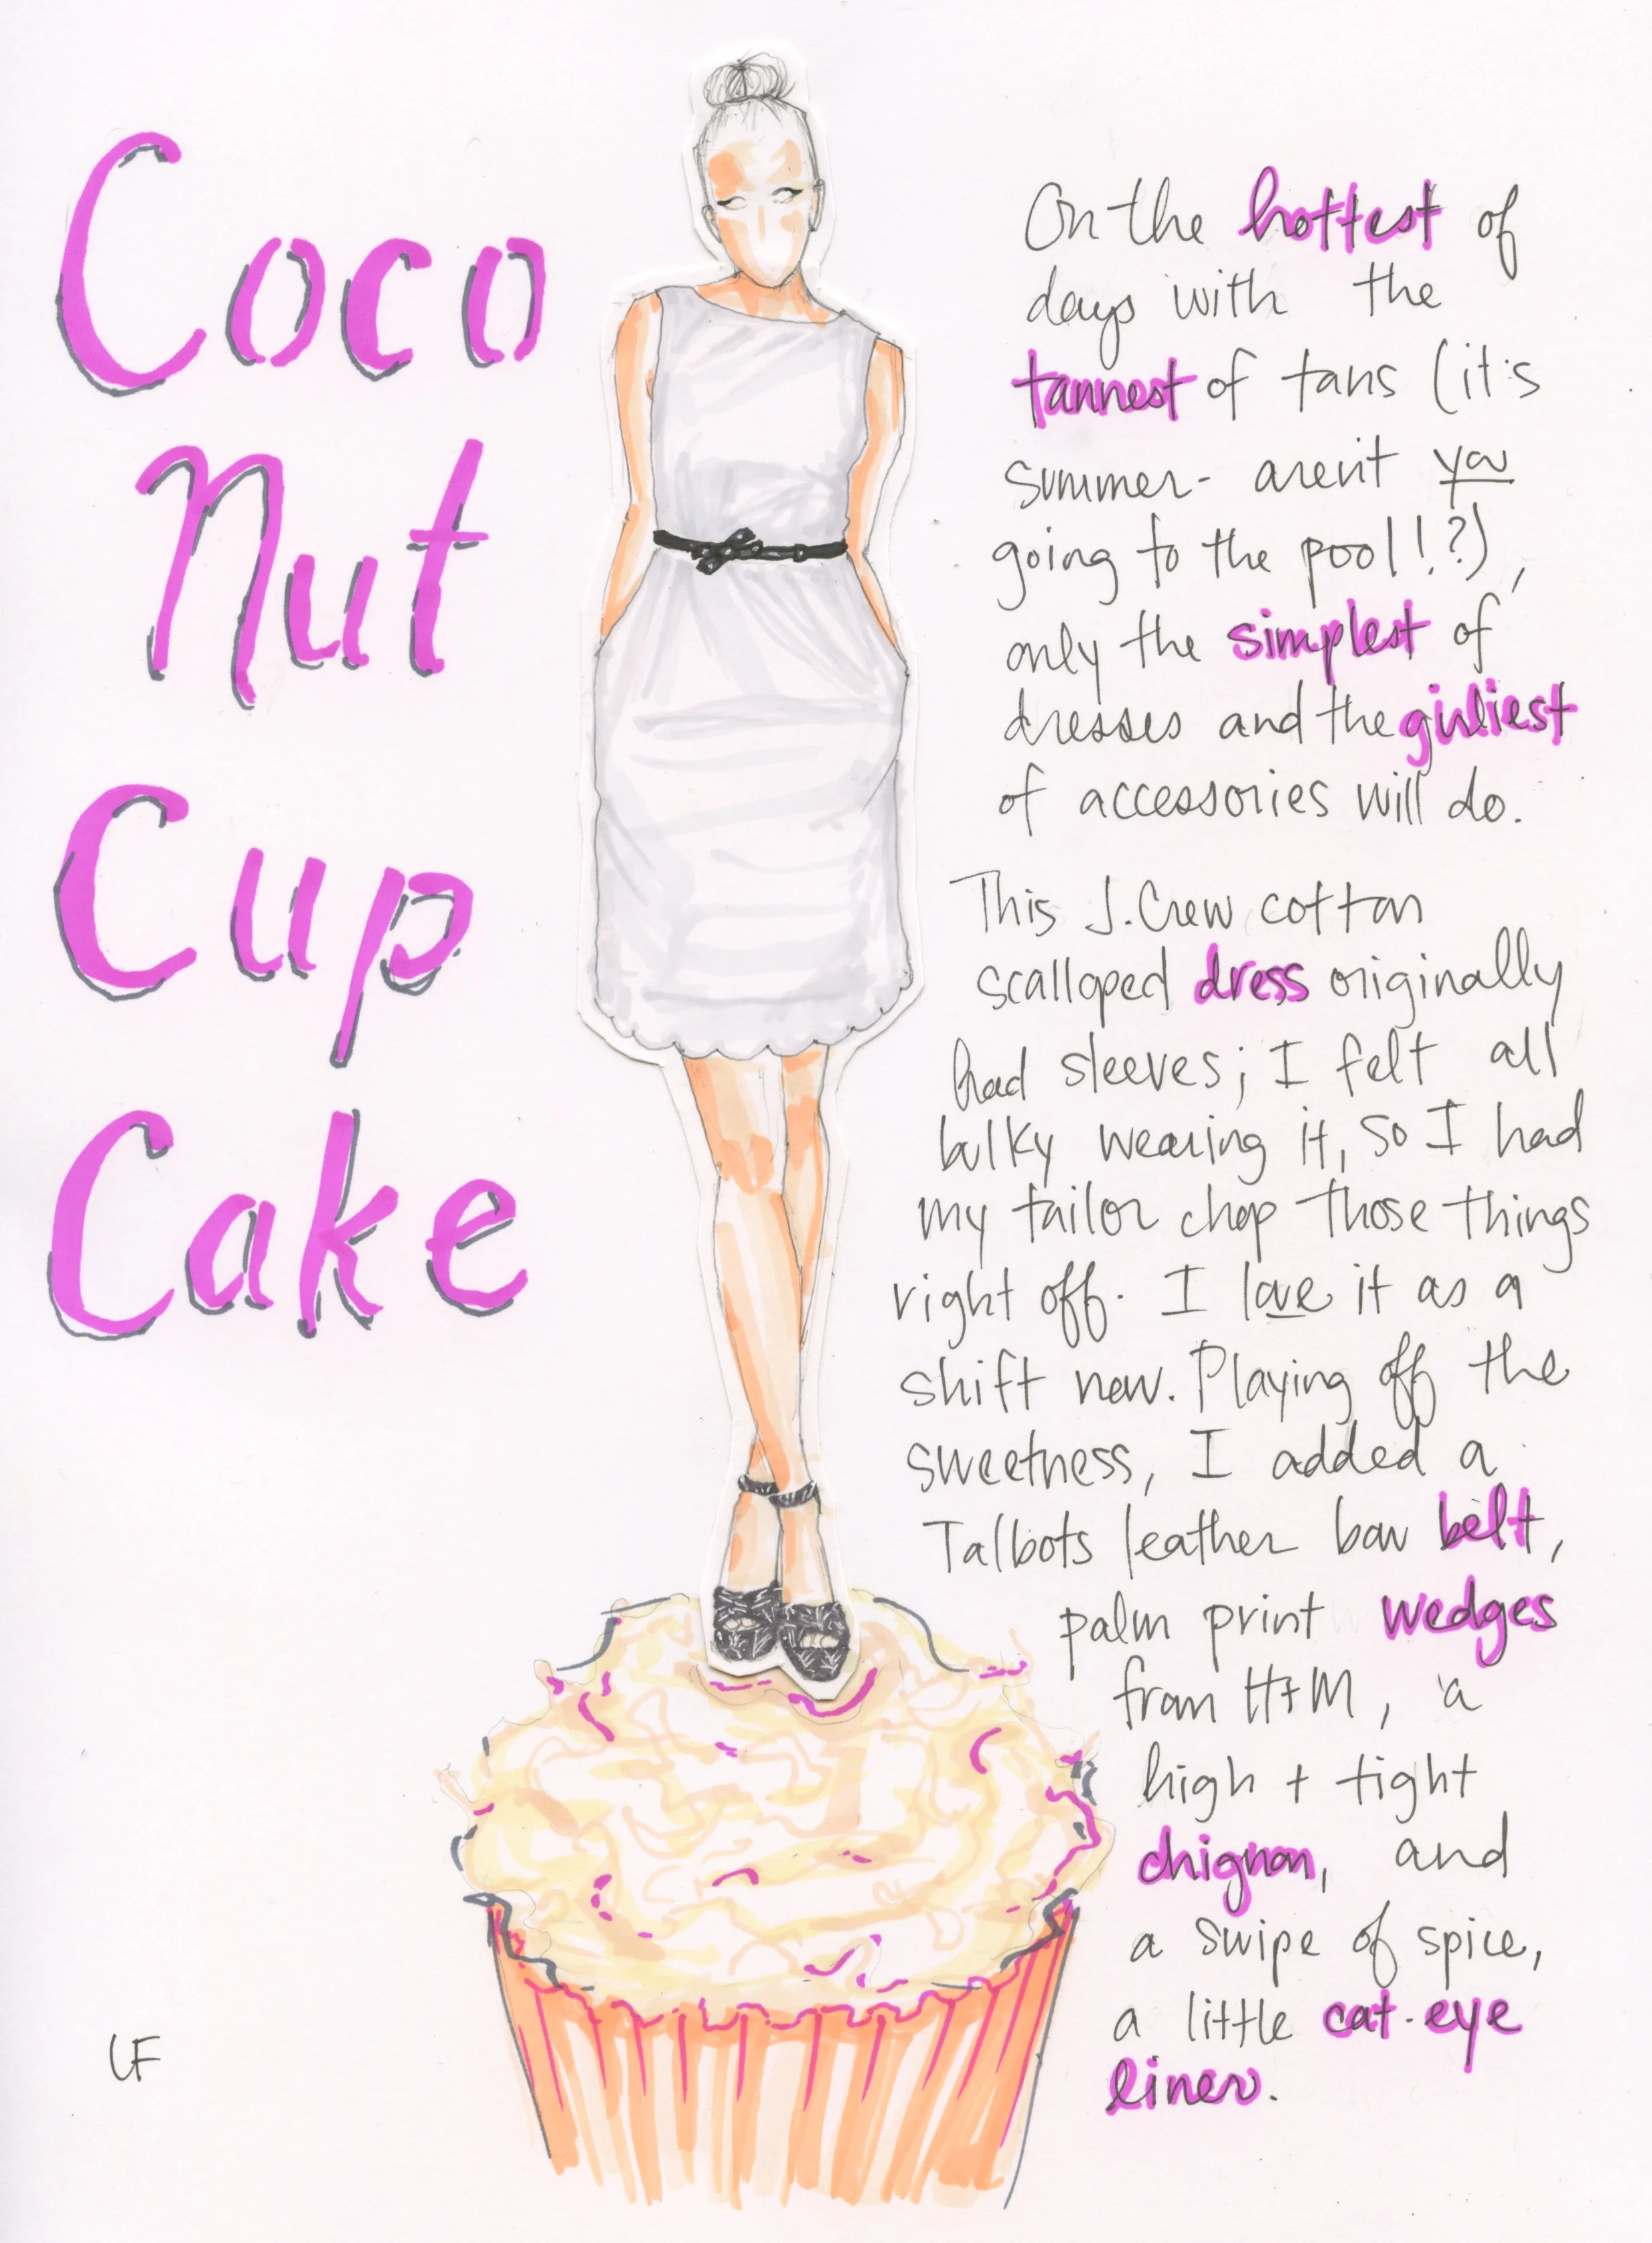 Coco
Nut
Cup
Cake
On the hottest of
days with the
tannest of tans (it's
summer- aren't you
going to the pool!?),
only the simplest of
dresses and the girliest
of accessories will do.
This J.Crew cotton
scalloped dress originally
had sleeves; I felt all
bulky wearing it, so I had
my tailor chop those things
right off. I love it as a
shift now. Playing off the
sweetness, I added a
Talbots leather bow belt,
palm print wedges
from H+M, a
high + tight
chignon, and
a swipe of spice,
a little cat-eye
liner.
LF